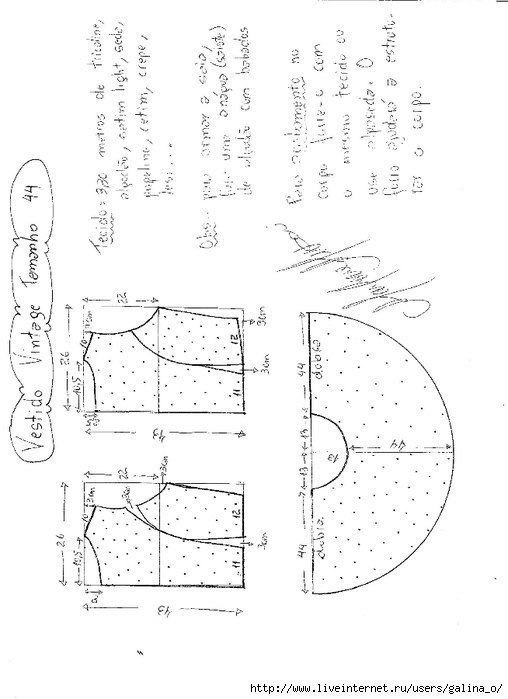 Vestido Vintage Tamanho 44
Tecido: 3,20 metros de tricoline,
algodão, cetim light, seda,
popeline, cetim, crepe,
lesi....
Obs.: para armar a saia,
uma anágua (saiote)
de algodão com babados
Para acabamento no
corpo forre-o com
o mesmo tecido ou
use alpaseda. O
forro ajudará a estrutu-
rar o corpo.
26
10,5
10
22
3cm
2
43
11
12
3cm
26
10,5
10
22
43
11
12
3cm
3cm
44
13
13
44
dobra
13
dobra
44
http://www.liveinternet.ru/users/galina_o/